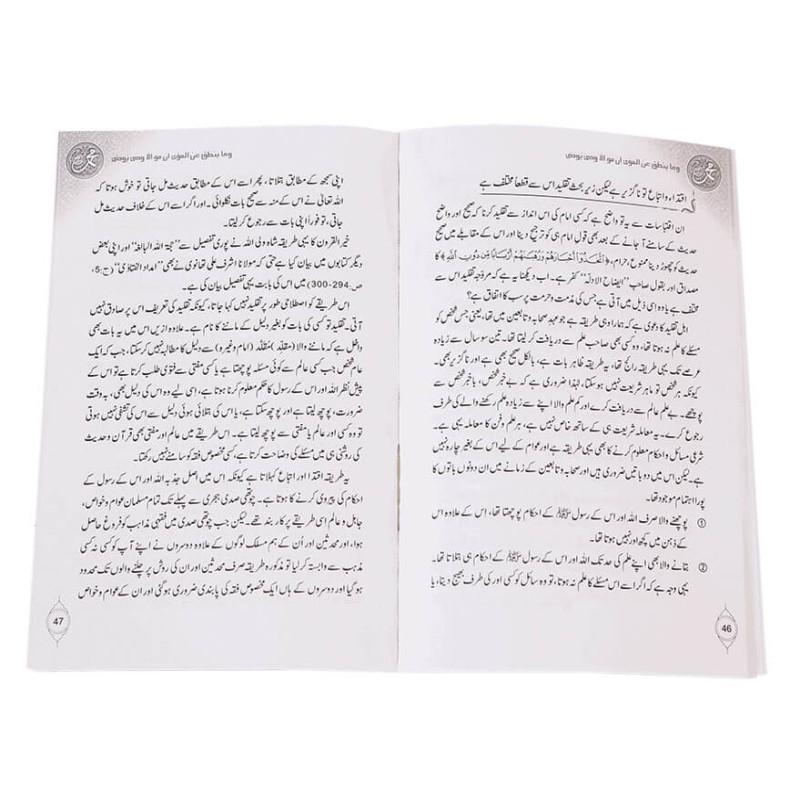 وما ينطق عن الهوى ان هو الا وحى يوحى
اقتداء و اتباع تو ناگزیر ہے لیکن زیر بحث تقلید اس سے قطعاً مختلف ہے
ان اقتباسات سے یہ تو واضح ہے کہ کسی امام کی اس انداز سے تقلید کرنا کہ صحیح اور واضح
حدیث کے سامنے آ جانے کے بعد بھی قول امام ہی کو ترجیح دینا اور اس کے مقابلے میں صحیح
حدیث کو چھوڑ دینا ممنوع، حرام، ﴿اتَّخَذُوْٓا اَحْبَارَهُمْ وَرُهْبَانَهُمْ اَرْبَابًا مِّنْ دُوْنِ اللّٰهِ﴾ کا
مصداق اور بقول صاحب ’’ایضاح الادلہ‘‘ کفر ہے۔ اب دیکھنا یہ ہے کہ مروجہ تقلید اس سے
مختلف ہے یا وہ اسی ذیل میں آتی ہے جس کی مذمت و حرمت پر سب کا اتفاق ہے؟
اہل تقلید کا دعویٰ ہے کہ ہمارا وہی طریقہ ہے جو عہد صحابہ و تابعین میں تھا، یعنی جس شخص کو
مسئلے کا علم نہ ہوتا تھا، وہ کسی بھی صاحب علم سے دریافت کر لیتا تھا۔ تین سو سال سے زیادہ
عرصے تک یہی طریقہ رائج تھا، یہ طریقہ ظاہر بات ہے، بالکل صحیح بھی ہے اور ناگزیر بھی،
کیونکہ ہر شخص تو ماہر شریعت نہیں ہو سکتا، لہٰذا ضروری ہے کہ بے خبر شخص، باخبر شخص سے
پوچھے۔ بے علم عالم سے دریافت کرے اور کم علم والا اپنے سے زیادہ علم رکھنے والے کی طرف
رجوع کرے۔ یہ معاملہ شریعت ہی کے ساتھ خاص نہیں ہے، ہر علم و فن کا معاملہ یہی ہے۔
شرعی مسائل و احکام معلوم کرنے کا بھی یہی طریقہ ہے اور عوام کے لیے اس کے بغیر چارہ نہیں
ہے۔ لیکن اس میں دو باتیں ضروری ہیں اور صحابہ و تابعین کے زمانے میں ان دونوں باتوں کا
پورا اہتمام موجود تھا۔
① پوچھنے والا صرف اللہ اور اس کے رسول ﷺ کے احکام پوچھتا تھا، اس کے علاوہ اس
کے ذہن میں کچھ اور نہیں ہوتا تھا۔
② بتانے والا بھی اپنے علم کی حد تک اللہ اور اس کے رسول ﷺ کے احکام ہی بتلاتا تھا۔
یہی وجہ ہے کہ اگر اسے اس مسئلے کا علم نہ ہوتا، تو وہ سائل کو کسی اور کی طرف بھیج دیتا، یا
46
وما ينطق عن الهوى ان هو الا وحى يوحى
اپنی سمجھ کے مطابق بتلاتا، پھر اسے اس کے مطابق حدیث مل جاتی تو خوش ہوتا کہ
اللہ تعالیٰ نے اس کے منہ سے صحیح بات نکلوائی۔ اور اگر اسے اس کے خلاف حدیث مل
جاتی، تو فوراً اپنی بات سے رجوع کر لیتا۔
خیر القرون کا یہی طریقہ شاہ ولی اللہ نے پوری تفصیل سے ’’حجۃ اللہ البالغہ‘‘ اور اپنی بعض
دیگر کتابوں میں بیان کیا ہے حتی کہ مولانا اشرف علی تھانوی نے بھی ’’امداد الفتاویٰ‘‘ (ج:5،
ص:294-300) میں اس کی بابت یہی تفصیل بیان کی ہے۔
اس طریقے کو اصطلاحی طور پر تقلید نہیں کہا جاتا، کیونکہ تقلید کی تعریف اس پر صادق نہیں
آتی۔ تقلید تو کسی کی بات کو بغیر دلیل کے ماننے کا نام ہے۔ علاوہ ازیں اس میں یہ بات بھی
داخل ہے کہ ماننے والا (مقلِّد) مقلَّد (امام وغیرہ) سے دلیل کا مطالبہ نہیں کر سکتا، جب کہ ایک
عام شخص جب کسی عالم سے کوئی مسئلہ پوچھتا ہے یا کسی مفتی سے فتویٰ طلب کرتا ہے تو اس کے
پیش نظر اللہ اور اس کے رسول کا حکم معلوم کرنا ہوتا ہے، اسی لیے وہ اس کی دلیل بھی، بہ وقت
ضرورت، پوچھ لیتا ہے اور پوچھ سکتا ہے، یا اس کی بتلائی ہوئی دلیل سے اس کی تشفی نہیں ہوتی
تو وہ کسی اور عالم یا مفتی سے پوچھ لیتا ہے۔ اس طریقے میں عالم اور مفتی بھی قرآن و حدیث
کی روشنی ہی میں مسئلے کی وضاحت کرتا ہے، کسی مخصوص فقہ کو سامنے نہیں رکھتا۔
یہ طریقہ اقتدا اور اتباع کہلاتا ہے کیونکہ اس میں اصل جذبہ اللہ اور اس کے رسول کے
احکام کی پیروی کرنے کا ہوتا ہے۔ چوتھی صدی ہجری سے پہلے تک تمام مسلمان عوام و خواص،
جاہل و عالم اسی طریقے پر کاربند تھے۔ لیکن جب چوتھی صدی میں فقہی مذاہب کو فروغ حاصل
ہوا، اور محدثین اور اُن کے ہم مسلک لوگوں کے علاوہ دوسروں نے اپنے آپ کو کسی نہ کسی
مذہب سے وابستہ کر لیا تو مذکورہ طریقہ صرف محدثین اور ان کی روش پر چلنے والوں تک محدود
ہو گیا اور دوسروں کے ہاں ایک مخصوص فقہ کی پابندی ضروری ہو گئی اور ان کے عوام و خواص
47